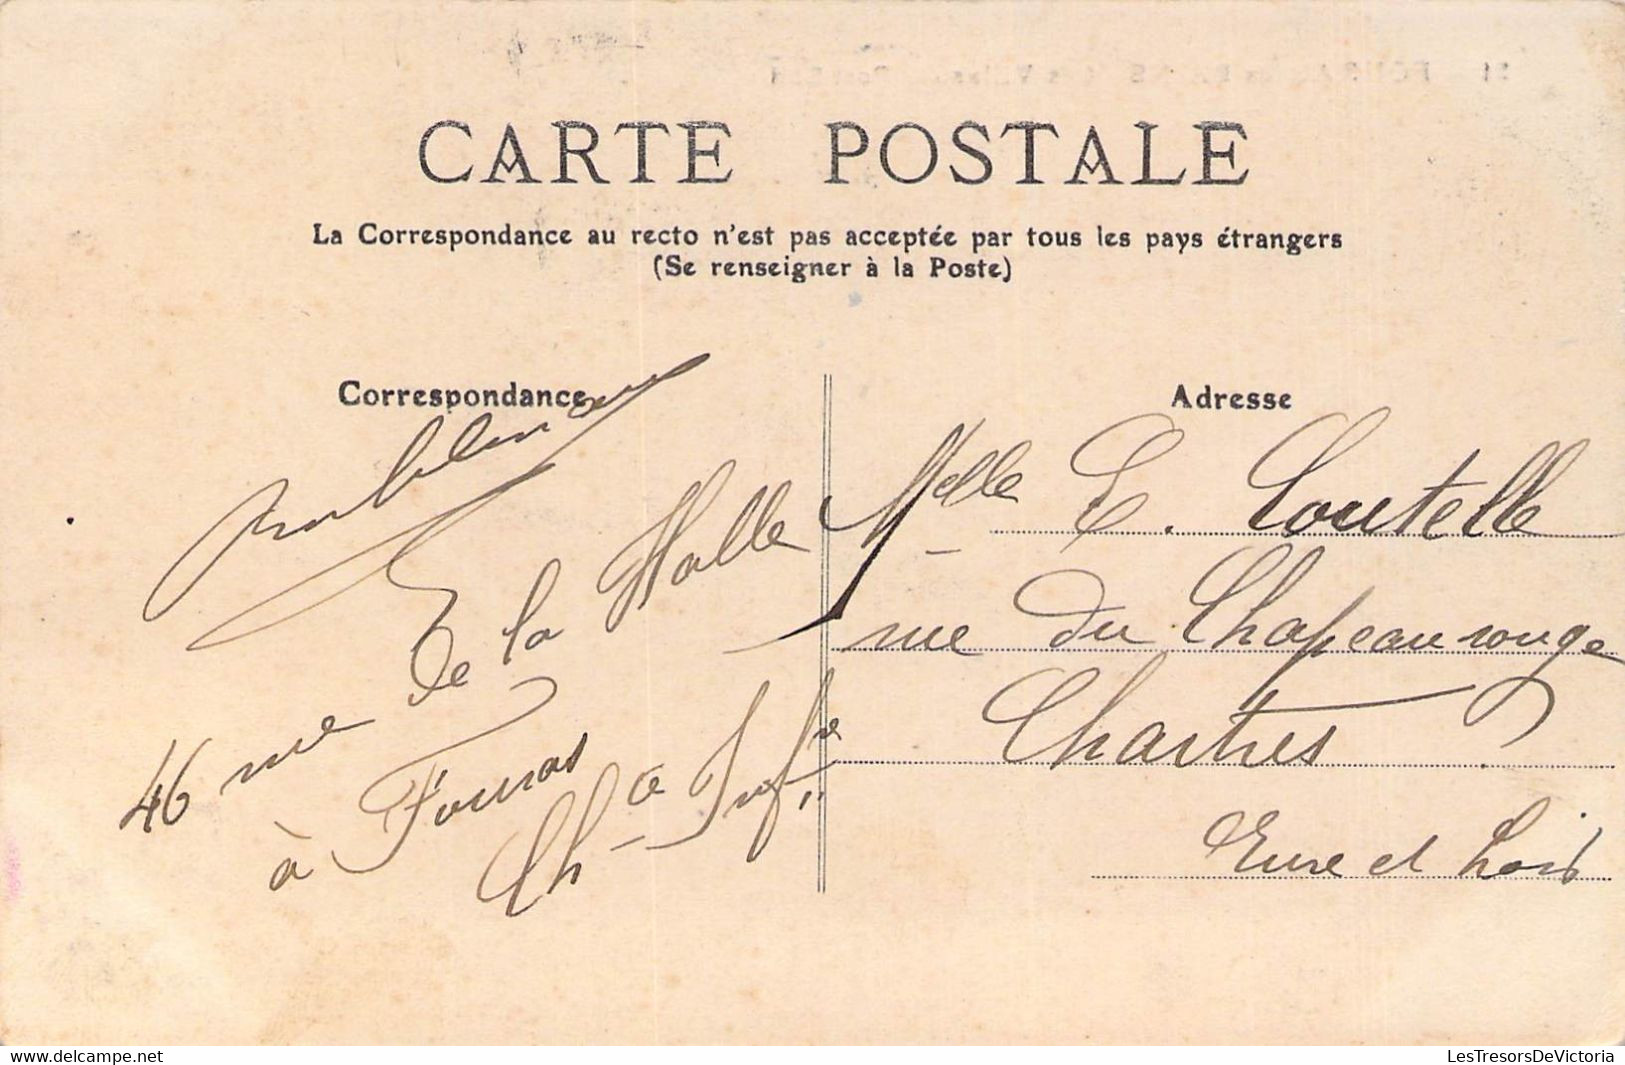 CARTE POSTALE
La Correspondance au recto n'est pas acceptée par tous les pays étrangers
(Se renseigner à la Poste)
Correspondance
46 rue de la Halle
à Fouras
Ch-e Infre
Adresse
Melle E. Loutelle
rue du Chapeau rouge
Chartres
Eure et Loir
Delcampe.net
LesTresorsDeVictoria